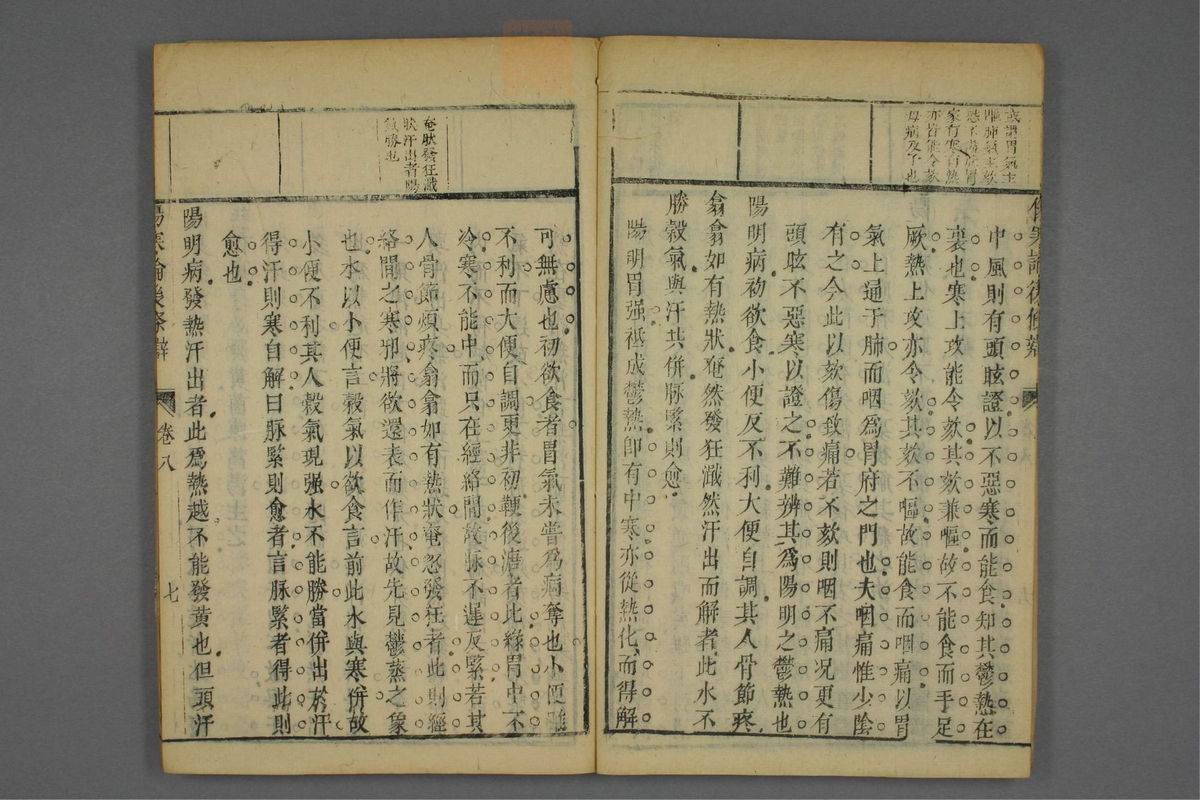 或謂胃氣主
咽肺氣主欬
胃
家有寒有熱
亦皆能令欬
毋病及子也
中風則有頭眩證以不惡寒而能食知其鬱熱在
裏也寒上攻能令欬其欬兼嘔故不能食而手足
厥熱上攻亦令欬其欬不嘔故能食而咽痛以胃
氣上通于肺而咽爲胃府之門也夫咽痛惟少陰
有之今此以欬傷致痛若不欬則咽不痛况更有
頭眩不惡寒以證之不難辨其爲陽明之鬱熱也
陽明病初欲食小便反不利大便自調其人骨節疼
翕翕如有熱狀奄然發狂濈然汗出而解者此水不
勝穀氣與汗共併脉緊則愈
陽明胃强祗成鬱熱卽有中寒亦從熱化而得解
傷寒論後條辨
奄狀發狂濈
狀汗出者陽
氣勝也
可無慮也初欲食者胃氣未嘗爲病奪也小便雖
不利而大便自調更非初鞕後溏者比緣胃中不
冷寒不能中而只在經絡間故脉不遲反緊若其
人骨節煩疼翕翕如有熱狀奄忽發狂者此則經
絡間之寒邪將欲還表而作汗故先見鬱蒸之象
也水以小便言穀氣以欲食言前此水與寒併故
小便不利其人穀氣現强水不能勝當併出於汗
得汗則寒自解曰脉緊則愈者言脉緊者得此則
愈也
陽明病發熱汗出者此爲熱越不能發黄也但頭汗
傷寒論後條辨 卷八 七